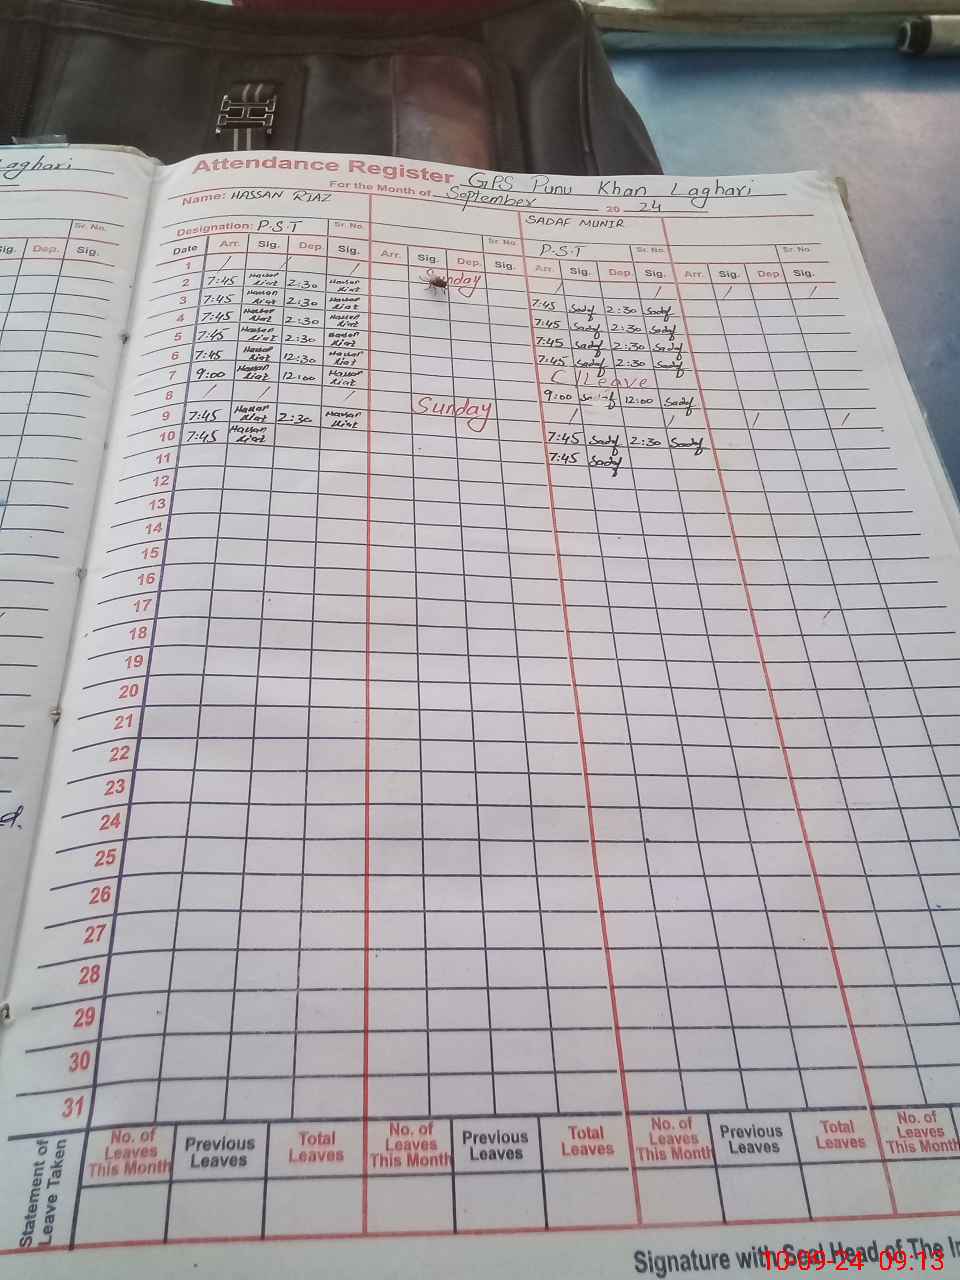 Laghari
Attendance Register GPS Punu Khan Laghari
For the Month of September 20 24
Name: HASSAN RIAZ SADAF MUNIR
Designation: P.S.T Sr. No. Sr. No. P.S.T Sr. No. Sr. No.
Sig. Dep. Sig. Date Arr. Sig. Dep. Sig. Arr. Sig. Dep. Sig. Arr. Sig. Dep. Sig. Arr. Sig. Dep. Sig.
1 / / / Sunday / / / /
2 7:45 Hassan Riaz 2:30 Hassan Riaz 7:45 Sadaf 2:30 Sadaf
3 7:45 Hassan Riaz 2:30 Hassan Riaz 7:45 Sadaf 2:30 Sadaf
4 7:45 Hassan Riaz 2:30 Hassan Riaz 7:45 Sadaf 2:30 Sadaf
5 7:45 Hassan Riaz 2:30 Hassan Riaz 7:45 Sadaf 2:30 Sadaf
6 7:45 Hassan Riaz 12:30 Hassan Riaz C/Leave
7 9:00 Hassan Riaz 12:00 Hassan Riaz 9:00 Sadaf 12:00 Sadaf
8 / / / Sunday / / / /
9 7:45 Hassan Riaz 2:30 Hassan Riaz 7:45 Sadaf 2:30 Sadaf
10 7:45 Hassan Riaz 7:45 Sadaf
11
12
13
14
15
16
17
18
19
20
21
22
23
24
25
26
27
28
29
30
31
Statement of Leave Taken
No. of Leaves This Month Previous Leaves Total Leaves No. of Leaves This Month Previous Leaves Total Leaves No. of Leaves This Month Previous Leaves Total Leaves No. of Leaves This Month
Signature with Seal Head of The In
10-09-24 09:13